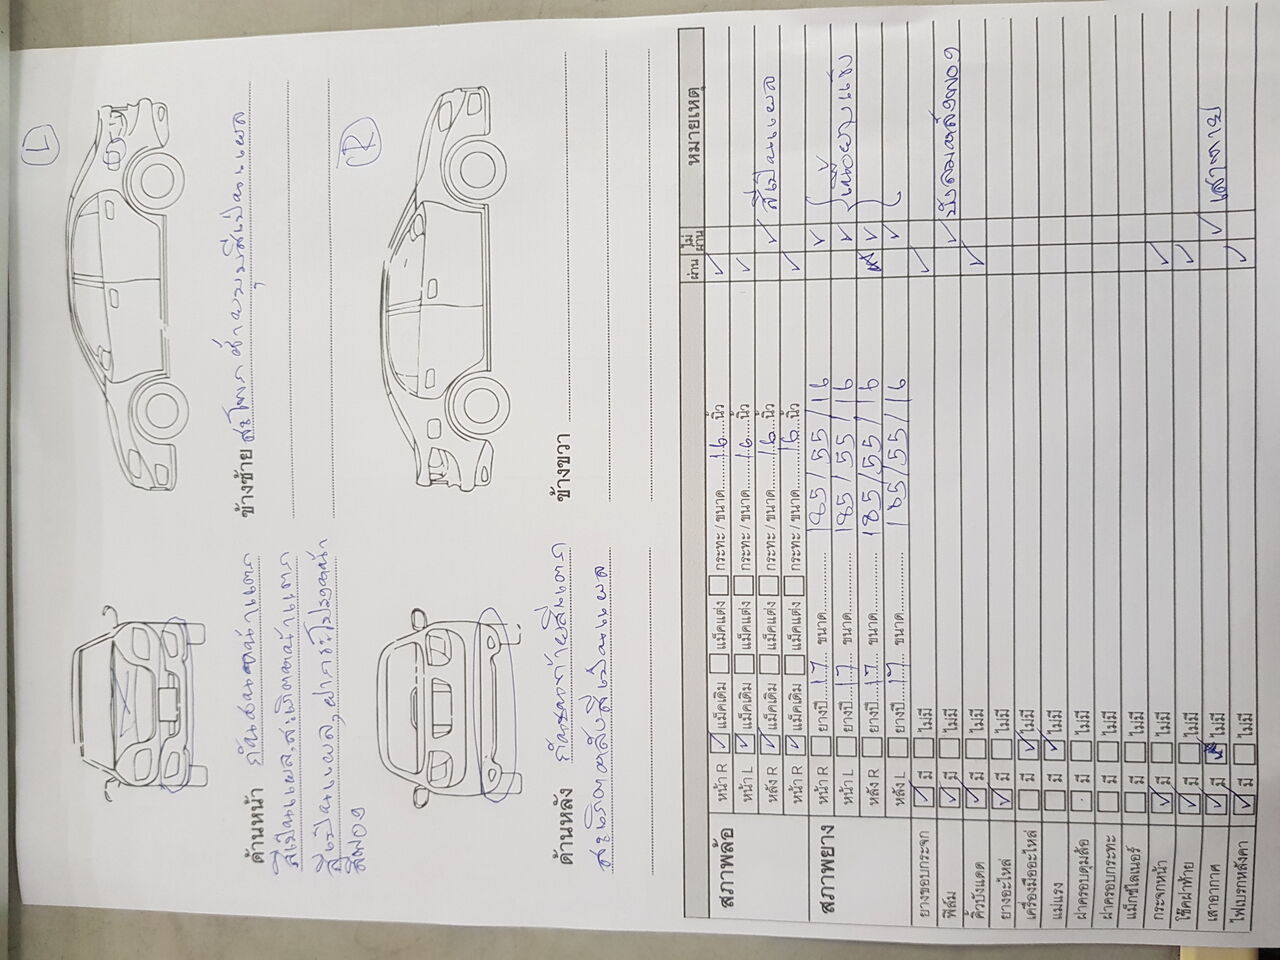 L
ด้านหน้า กันชนหน้าแตก
สีเป็นแผล, สเกิตหน้าแตก
สีเป็นแผล, ฝากระโปรงหน้า
สีพอง
ข้างซ้าย สะโพก ซ้าย มุม สีเป็นแผล
R
ด้านหลัง กันชนท้ายสีแตก
สเกิตหลังสีเป็นแผล
ข้างขวา
ผ่าน ไม่ผ่าน หมายเหตุ
สภาพล้อ หน้า R แม็คเดิม แม็คแต่ง กระทะ / ขนาด 16 นิ้ว
หน้า L แม็คเดิม แม็คแต่ง กระทะ / ขนาด 16 นิ้ว
หลัง R แม็คเดิม แม็คแต่ง กระทะ / ขนาด 16 นิ้ว สีเป็นแผล
หน้า R แม็คเดิม แม็คแต่ง กระทะ / ขนาด 16 นิ้ว
สภาพยาง หน้า R ยางปี 17 ขนาด 185/55/16
หน้า L ยางปี 17 ขนาด 185/55/16 เนื้อยางแข็ง
หลัง R ยางปี 17 ขนาด 185/55/16
หลัง L ยางปี 17 ขนาด 185/55/16
ยางขอบกระจก มี ไม่มี
ฟิล์ม มี ไม่มี บังลมหลังพอง
คิ้วบังแดด มี ไม่มี
ยางอะไหล่ มี ไม่มี
เครื่องมืออะไหล่ มี ไม่มี
แม่แรง มี ไม่มี
ฝาครอบดุมล้อ มี ไม่มี
ฝาครอบกระทะ มี ไม่มี
แม็กซ์ไลเนอร์ มี ไม่มี
กระจกหน้า มี ไม่มี
โช๊คฝาท้าย มี ไม่มี
เสาอากาศ มี ไม่มี เสาหาย
ไฟเบรกหลังคา มี ไม่มี